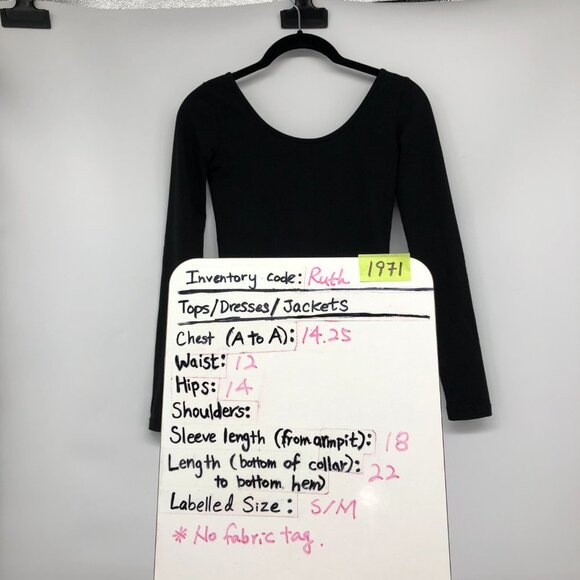 Inventory code: Ruth 1971
Tops/Dresses/Jackets
Chest (A to A): 14.25
Waist: 12
Hips: 14
Shoulders:
Sleeve length (from armpit): 18
Length (bottom of collar): 22
to bottom hem)
Labelled Size: S/M
* No fabric tag.